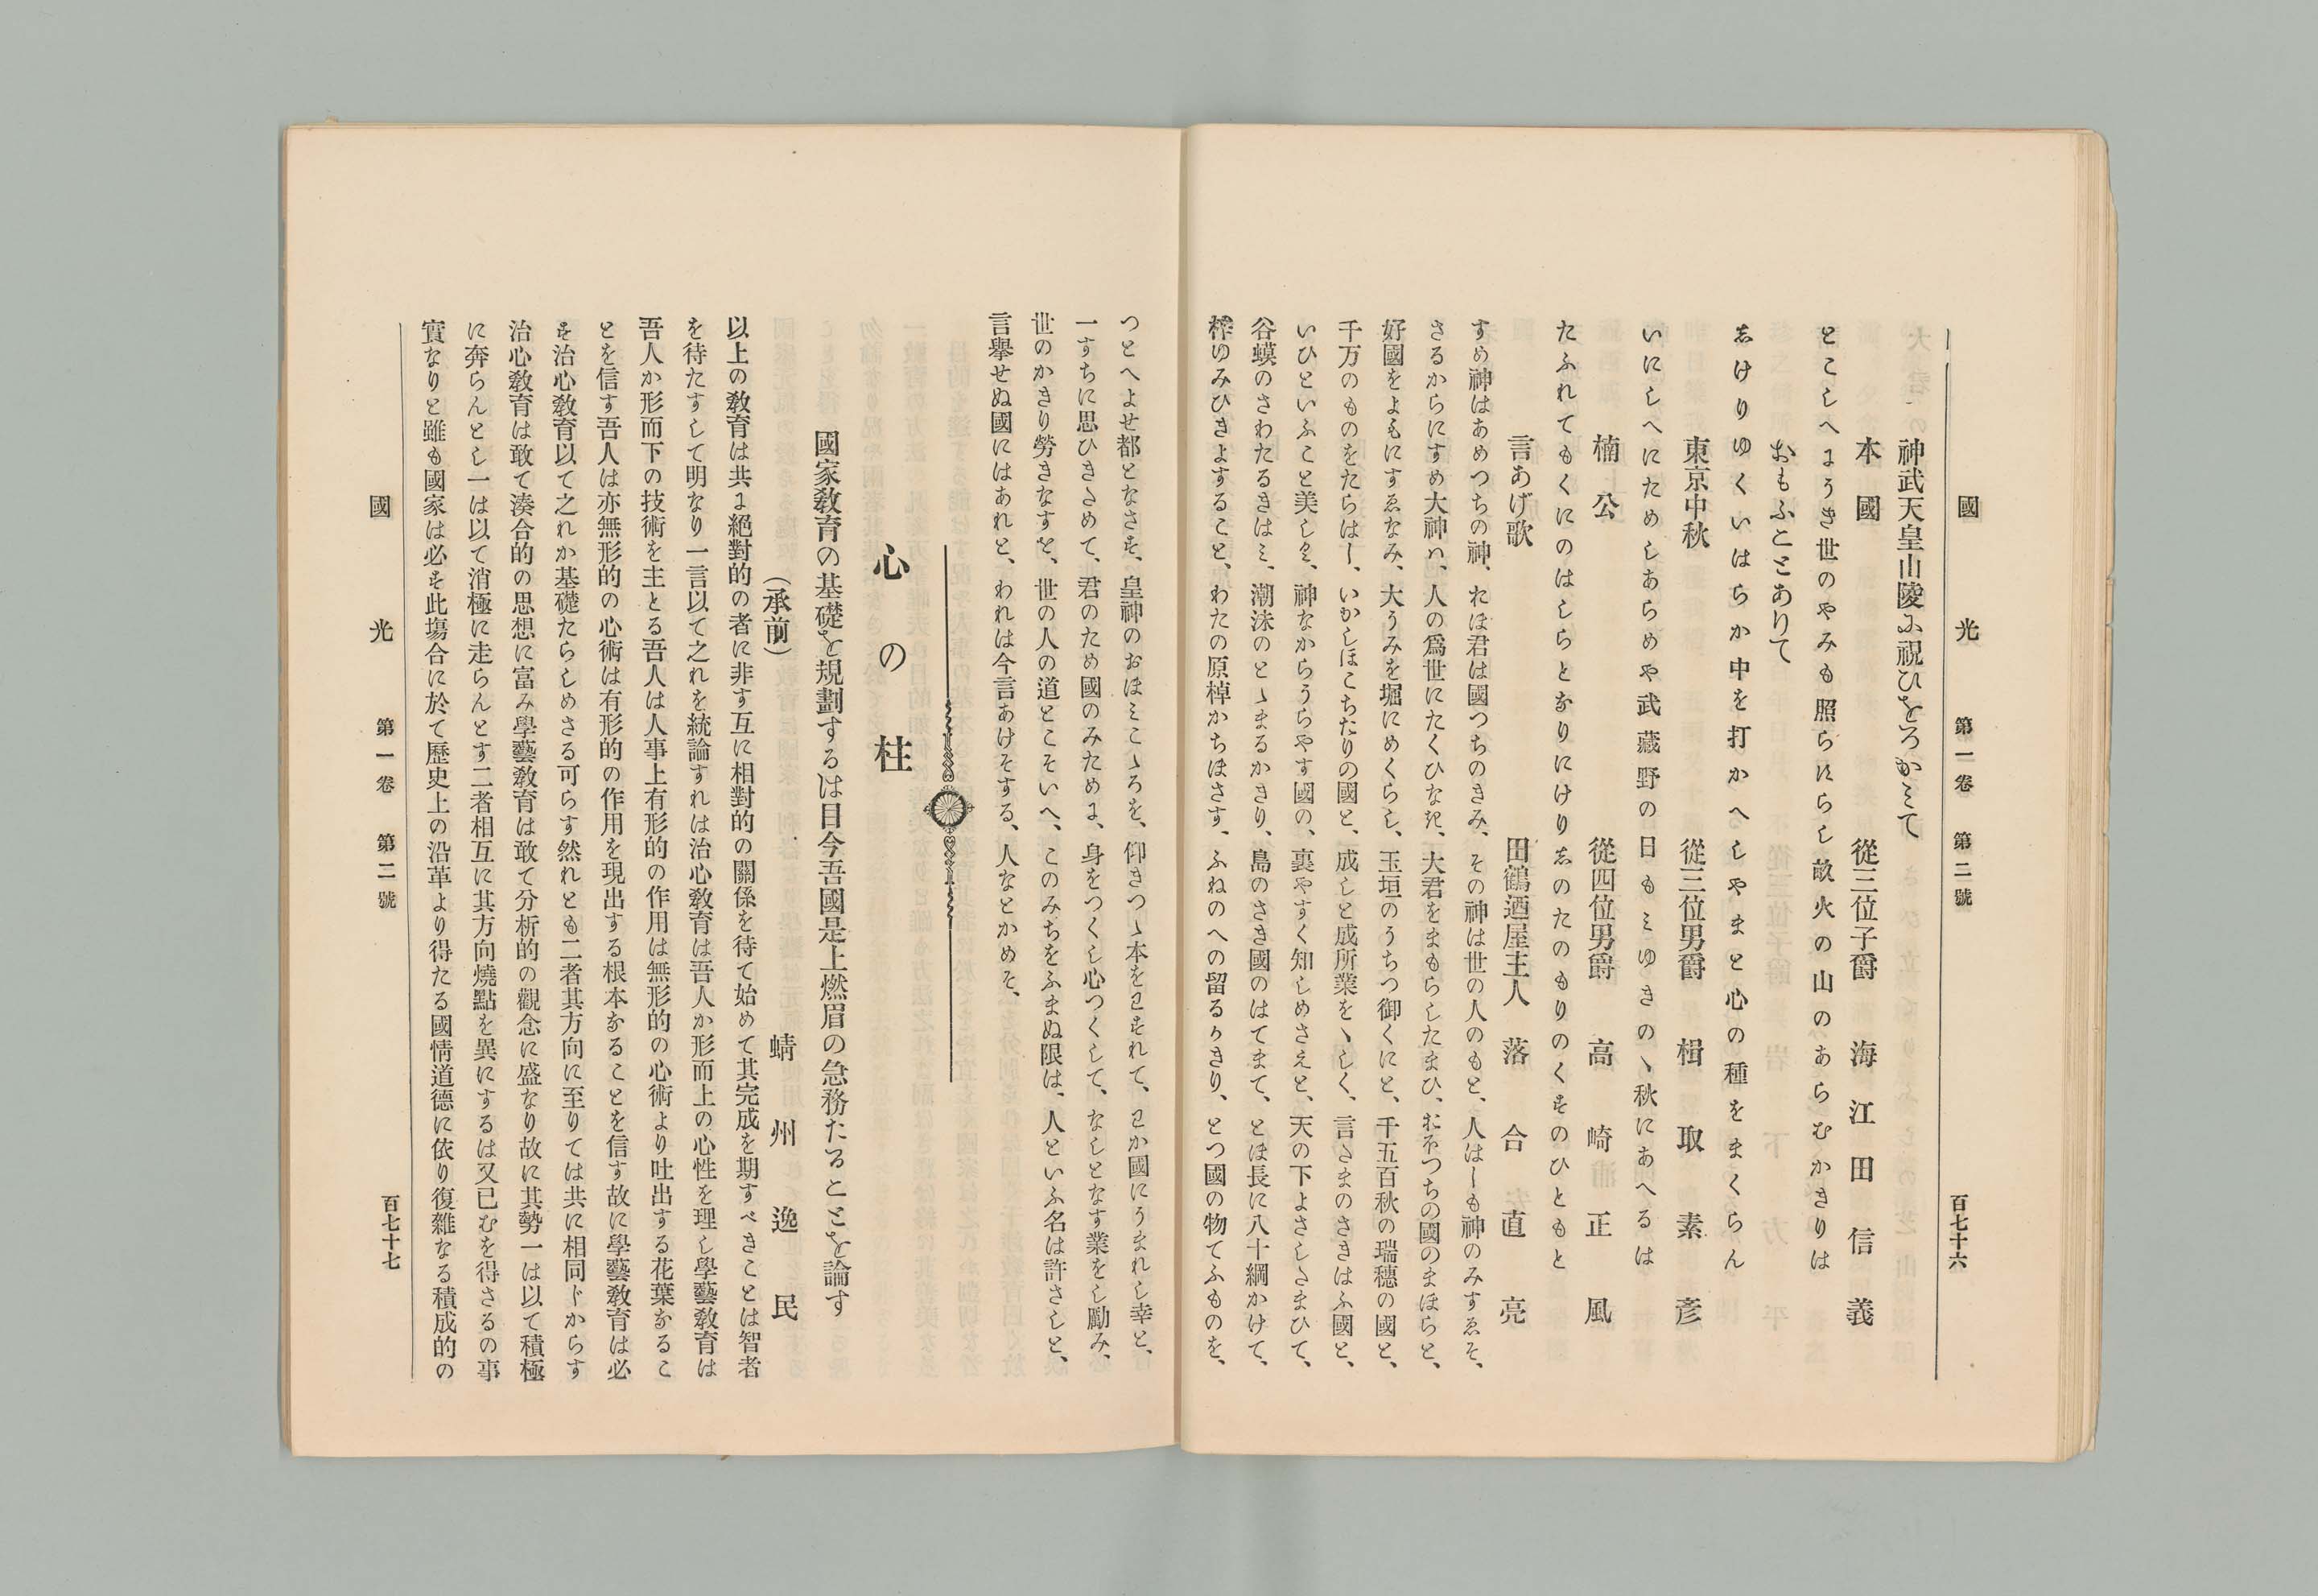 國光 第一卷 第二號 百七十六
神武天皇山陵ふ祝ひをろがミて
本國 從三位子爵 海江田信義
とこしへようき世のやみも照らにらし畝火の山のあらむかきりは
おもふことありて
志けりゆくいはらか中を打かへしやまと心の種をまくらん
東京中秋 從三位男爵 楫取素彥
いにしへにためしあらめや武藏野の日もミゆきのゝ秋にあへるは
楠公 從四位男爵 高崎正風
たふれてもくにのはしらとなりにけり志のたのもりのくすのひともと
言あげ歌 田鶴迺屋主人 落合直亮
すめ神はあめつちの神、たほ君は國つちのきみ、その神は世の人のもと、人はしも神のみすゑそ、
さるからにすめ大神ハ、人の爲世にたくひなき、大君をまもらしたまひ、おほつちの國のまほらと、
好國をよもにすゑなみ、大うみを堀にめくらし、玉垣のうちつ御くにと、千五百秋の瑞穗の國と、
千万のものをたらはし、いかしほこちたりの國と、成しと成所業をゝしく、言さまのさきはふ國と、
いひといふこと美しく、神なからうらやす國の、裏やすく知しめさえと、天の下よさしさまひて、
谷蟆のさわたるきはミ、潮沫のとゝまるかきり、島のさき國のはてまて、とほ長に八十綱かけて、
榨ゆみひきよすること、わたの原棹かちほさす、ふねのへの留るかきり、とつ國の物てふものを、
つとへよせ都となさす、皇神のおほミこゝろを、仰きつゝ本をわすれて、わか國にうまれし幸と、
一すちに思ひきさめて、君のため國のみために、身をつくし心つくして、なしとなす業をし勵み、
世のかきり勞きなすを、世の人の道とこそいへ、このみちをふまぬ限は、人といふ名は許さしと、
言擧せぬ國にはあれと、われは今言あけそする、人なとかめそ、
心の柱
國家敎育の基礎を規劃するは目今吾國是上燃眉の急務たることを論す
（承前） 蜻州逸民
以上の敎育は共に絕對的の者に非す互に相對的の關係を待て始めて其完成を期すべきことは智者
を待たすして明なり一言以て之れを統論すれは治心敎育は吾人か形而上の心性を理し學藝敎育は
吾人か形而下の技術を主とる吾人は人事上有形的の作用は無形的の心術より吐出する花葉なるこ
とを信す吾人は亦無形的の心術は有形的の作用を現出する根本なることを信す故に學藝敎育は必
す治心敎育以て之れか基礎たらしめさる可らす然れとも二者其方向に至りては共に相同じからす
治心敎育は敢て湊合的の思想に富み學藝敎育は敢て分析的の觀念に盛なり故に其勢一は以て積極
に奔らんとし一は以て消極に走らんとす二者相互に其方向燒點を異にするは又已むを得さるの事
實なりと雖も國家は必す此塲合に於て歷史上の沿革より得たる國情道德に依り復雜なる積成的の
國光 第一卷 第二號 百七十七